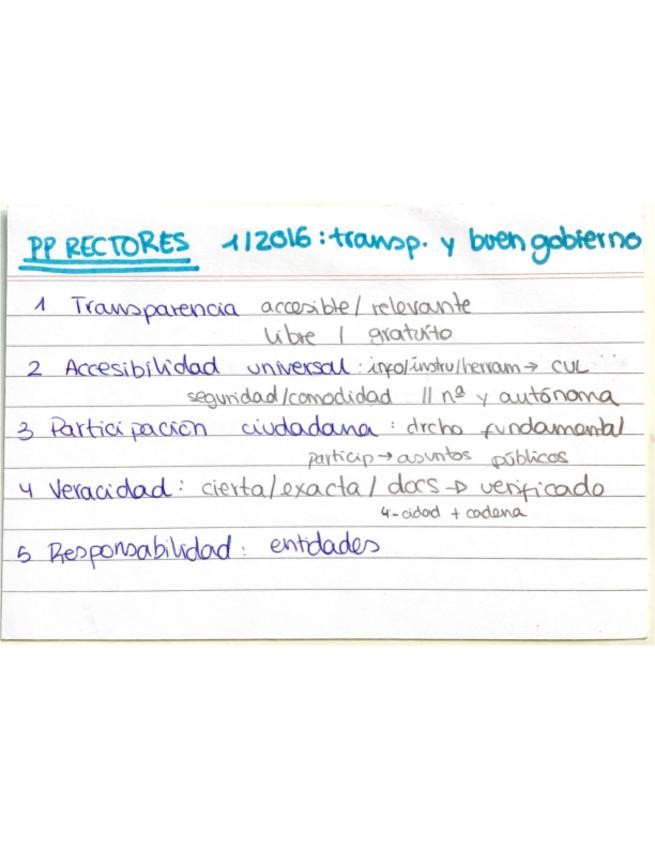 PP RECTORES 1/2016: transp. y buen gobierno
1 Transparencia accesible / relevante
libre / gratuito
2 Accesibilidad universal: info/instru/herram → CUL
seguridad/comodidad // nª y autónoma
3 Participación ciudadana: drcho fundamental
particip → asuntos públicos
4 Veracidad: cierta/exacta/ docs → verificado
4-cidad + cadena
5 Responsabilidad: entidades